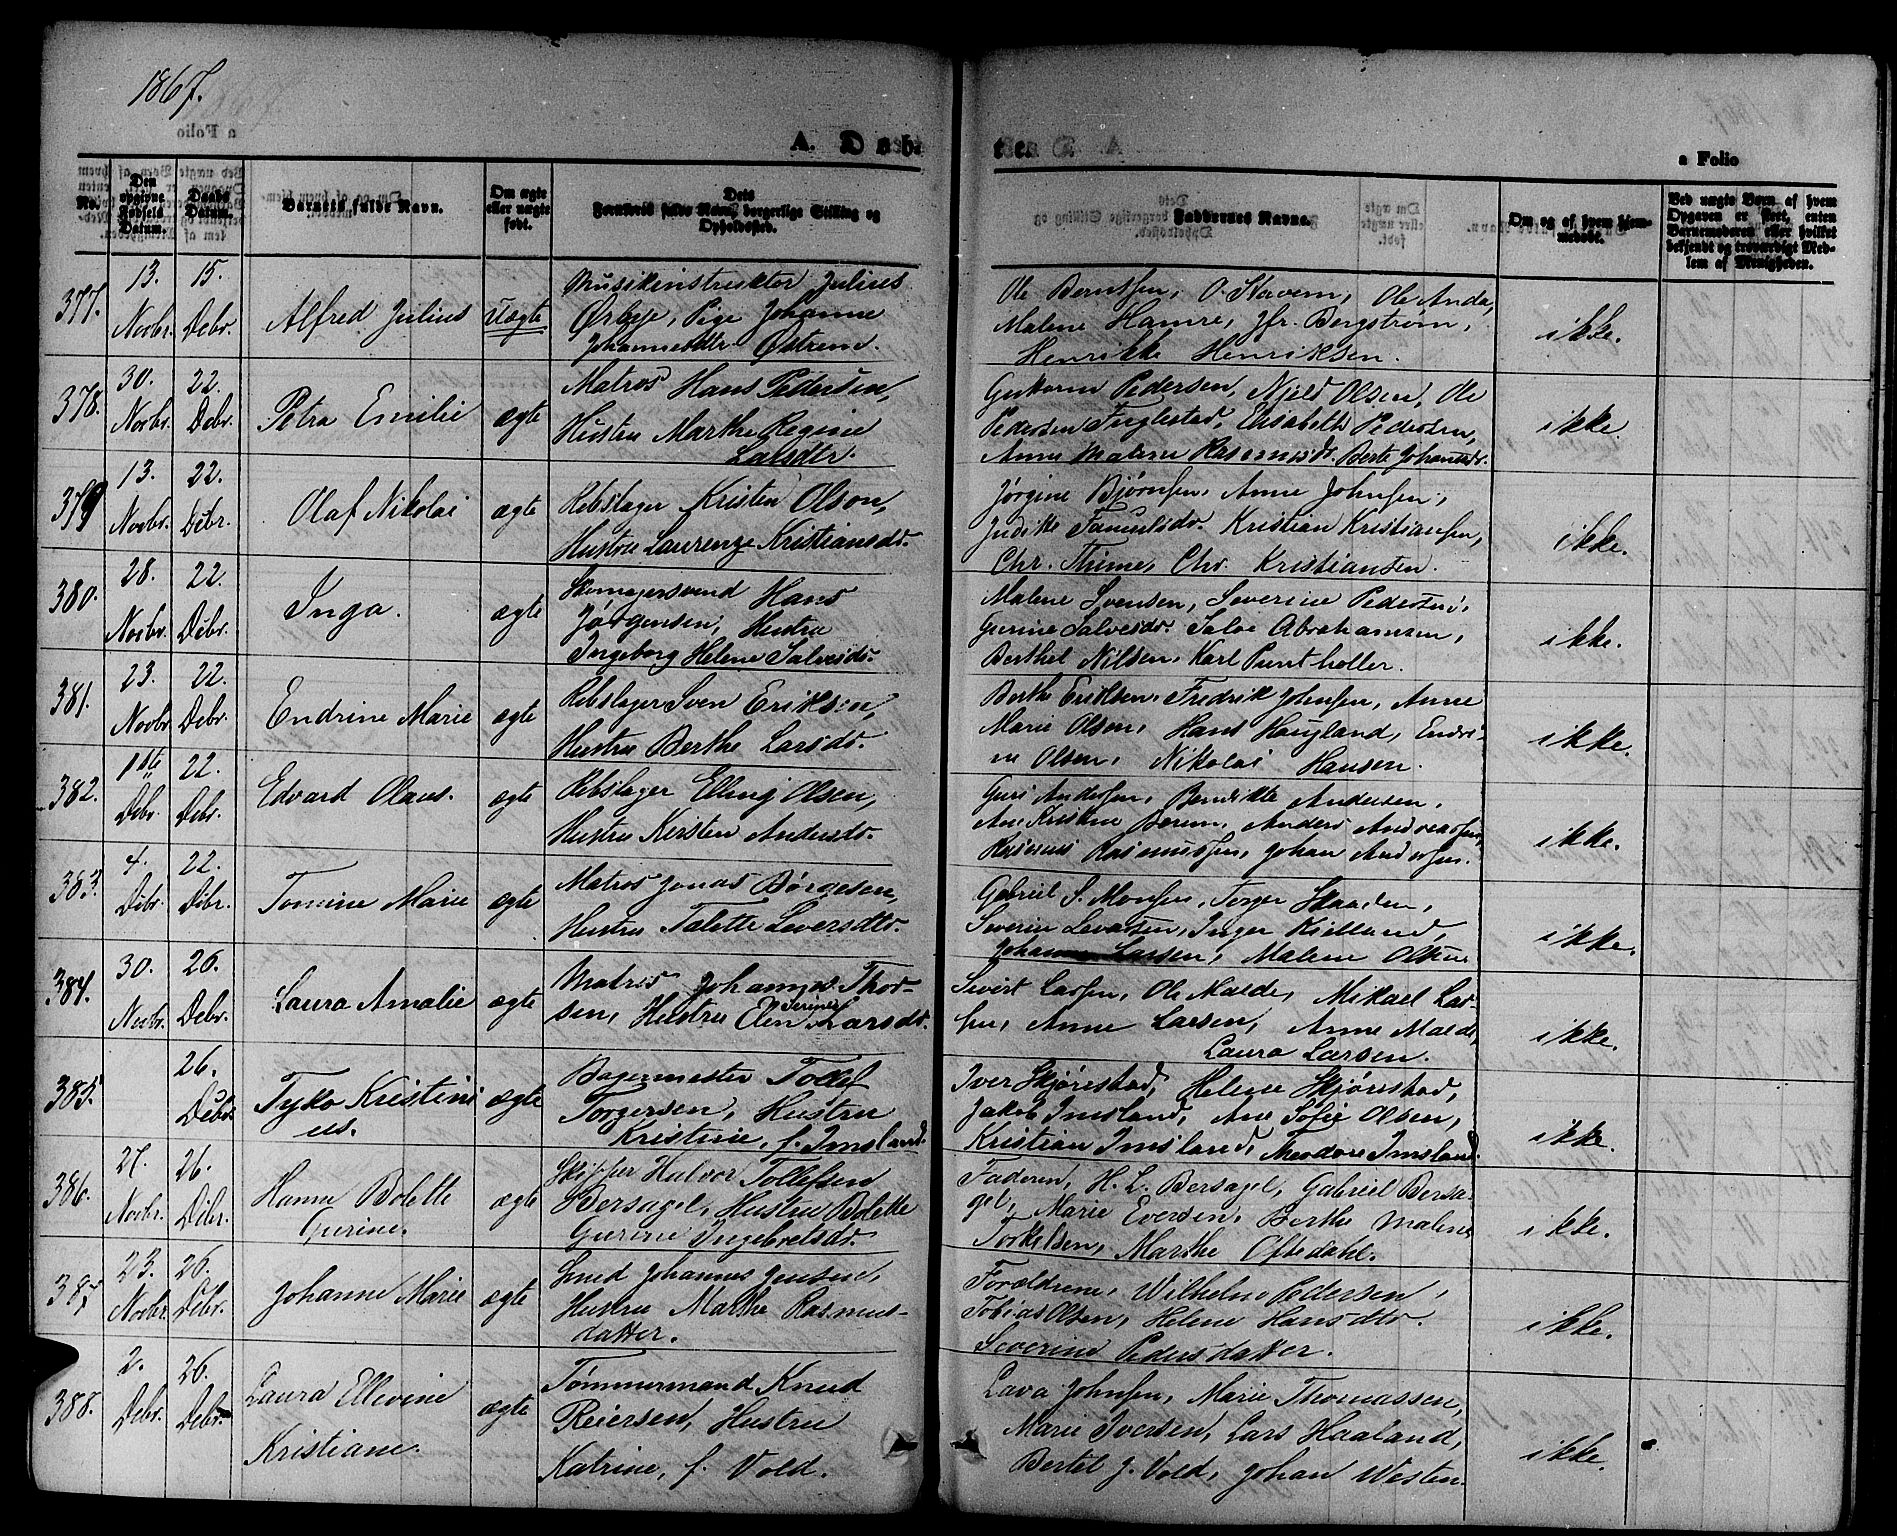 1867.
A. Døbte
a Folio
No.
Den opgivne Fødsels Datum.
Daabs Datum.
Barnets fulde Navn.
Om ægte eller uægte født.
Dets Forældres fulde Navn, borgerlige Stilling og Opholdssted.
Faddernes Navne.
Om og af hvem hjemmedøbt.
Ved uægte Børn af hvem Opgaven er skeet, enten Barnemoderen eller hvilket bekjendt og troværdigt Medlem af Menigheden.
377. 13. Novbr. 15. Debr. Alfred Julius Uægte
Musikinstruktør Julius
Ørbye, Pige Johanne
Johannesdtr. Østreme.
Ole Berntsen, O. Stavem, Ole Anda,
Malene Hamre, Jfr. Bergstrøm,
Henrikke Henriksen.
ikke.
378. 30. Novbr. 22. Debr. Petra Emilie ægte
Matros Hans Pedersen,
Hustru Marthe Regine
Larsdtr.
Gutorm Pedersen, Njeld Olsen, Ole
Pedersen Fuglestad, Elisabeth Pedersen,
Anne Malene Rasmusdr. Berte Johannesdr.
ikke.
379 13. Novbr. 22. Debr. Olaf Nikolai ægte
Rebslager Kristen Olson,
Hustru Laurenze Kristiansdr.
Jørgine Bjørnsen, Anne Johnsen,
Judikte Samuelsdr. Kristian Kristiansen,
Chr. Thime, Chr. Kristiansen.
ikke.
380. 28. Novbr. 22. Debr. Inga. ægte
Skomagersvend Hans
Jørgensen, Hustru
Ingeborg Helene Salvesdr.
Malene Svensen, Severine Pedersen,
Gurine Salvesdr. Salve Abrahamsen,
Berthel Nilsen, Karl Puntholler.
ikke.
381. 23. Novbr. 22. Debr. Endrine Marie ægte
Rebslager Sven Eriksen,
Hustru Berthe Larsdr.
Berthe Eriksen, Fredrik Johnsen, Anne
Marie Olsen, Hans Haugland, Endri-
ne Olsen, Nikolai Hansen.
ikke.
382. Debr. 22. Debr. Edvard Olaus. ægte
Rebslager Elling Olsen,
Hustru Kirsten Andersdr.
Guri Andersen, Bendikte Andersen,
Ane Kristine Berem, Anders Andreassen,
Rasmus Rasmussen, Johan Andersen.
ikke.
383. 4. Debr. 22. Debr. Tomine Marie ægte
Matros Jonas Børgesen,
Hustru Talette Seversdtr.
Gabriel S. Monsen, Torger Skaaden,
Severin Levarsen, Inger Kielland,
Larsen, Malene Olsen
ikke.
384. 30. Novbr. 26. Debr. Laura Amalie ægte
Matros Johannes Thor-
sen, Hustru Elen Serine Larsdr.
Sivert Larsen, Ole Malde, Mikael Lar-
sen, Anne Larsen, Anne Malde,
Laura Larsen.
ikke.
385. 26. Debr. Tyko Kristini-
us. ægte
Bagermester Tollef
Torgersen, Hustru
Kristine, f. Imsland.
Iver Skjørestad, Helene Skjørestad,
Jakob Imsland, Ane Sofie Olsen,
Kristian Imsland, Theodore Imsland.
ikke
386. 27. Novbr. 26. Debr. Hanna Bolette
Gurine. ægte
Skipper Halvor Tollefsen
Bersagel, Hustru Bolette
Gurine Ingebretsdr.
Faderen, H. L. Bersagel, Gabriel Bersa-
gel, Marie Eversen, Berthe Malene
Torkelsen, Marthe Oftedahl.
ikke.
387 23. Novbr. 26. Debr. Johanne Marie ægte
Smed Johannes Jensen,
Hustru Marthe Rasmus-
datter.
Forældrene, Wilhelm Pedersen,
Tobias Olsen, Helene Hansdtr.
Severine Pedersdatter.
ikke.
388. 2. Debr. 26. Debr. Laura Ellevine
Kristiane. ægte
Tømmermand Knud
Reiersen, Hustru
Katrine, f. Vold.
Lava Johnsen, Marie Thomassen,
Marie Iversen, Lars Haaland,
Bertel J. Vold, Johan Westen.
ikke.